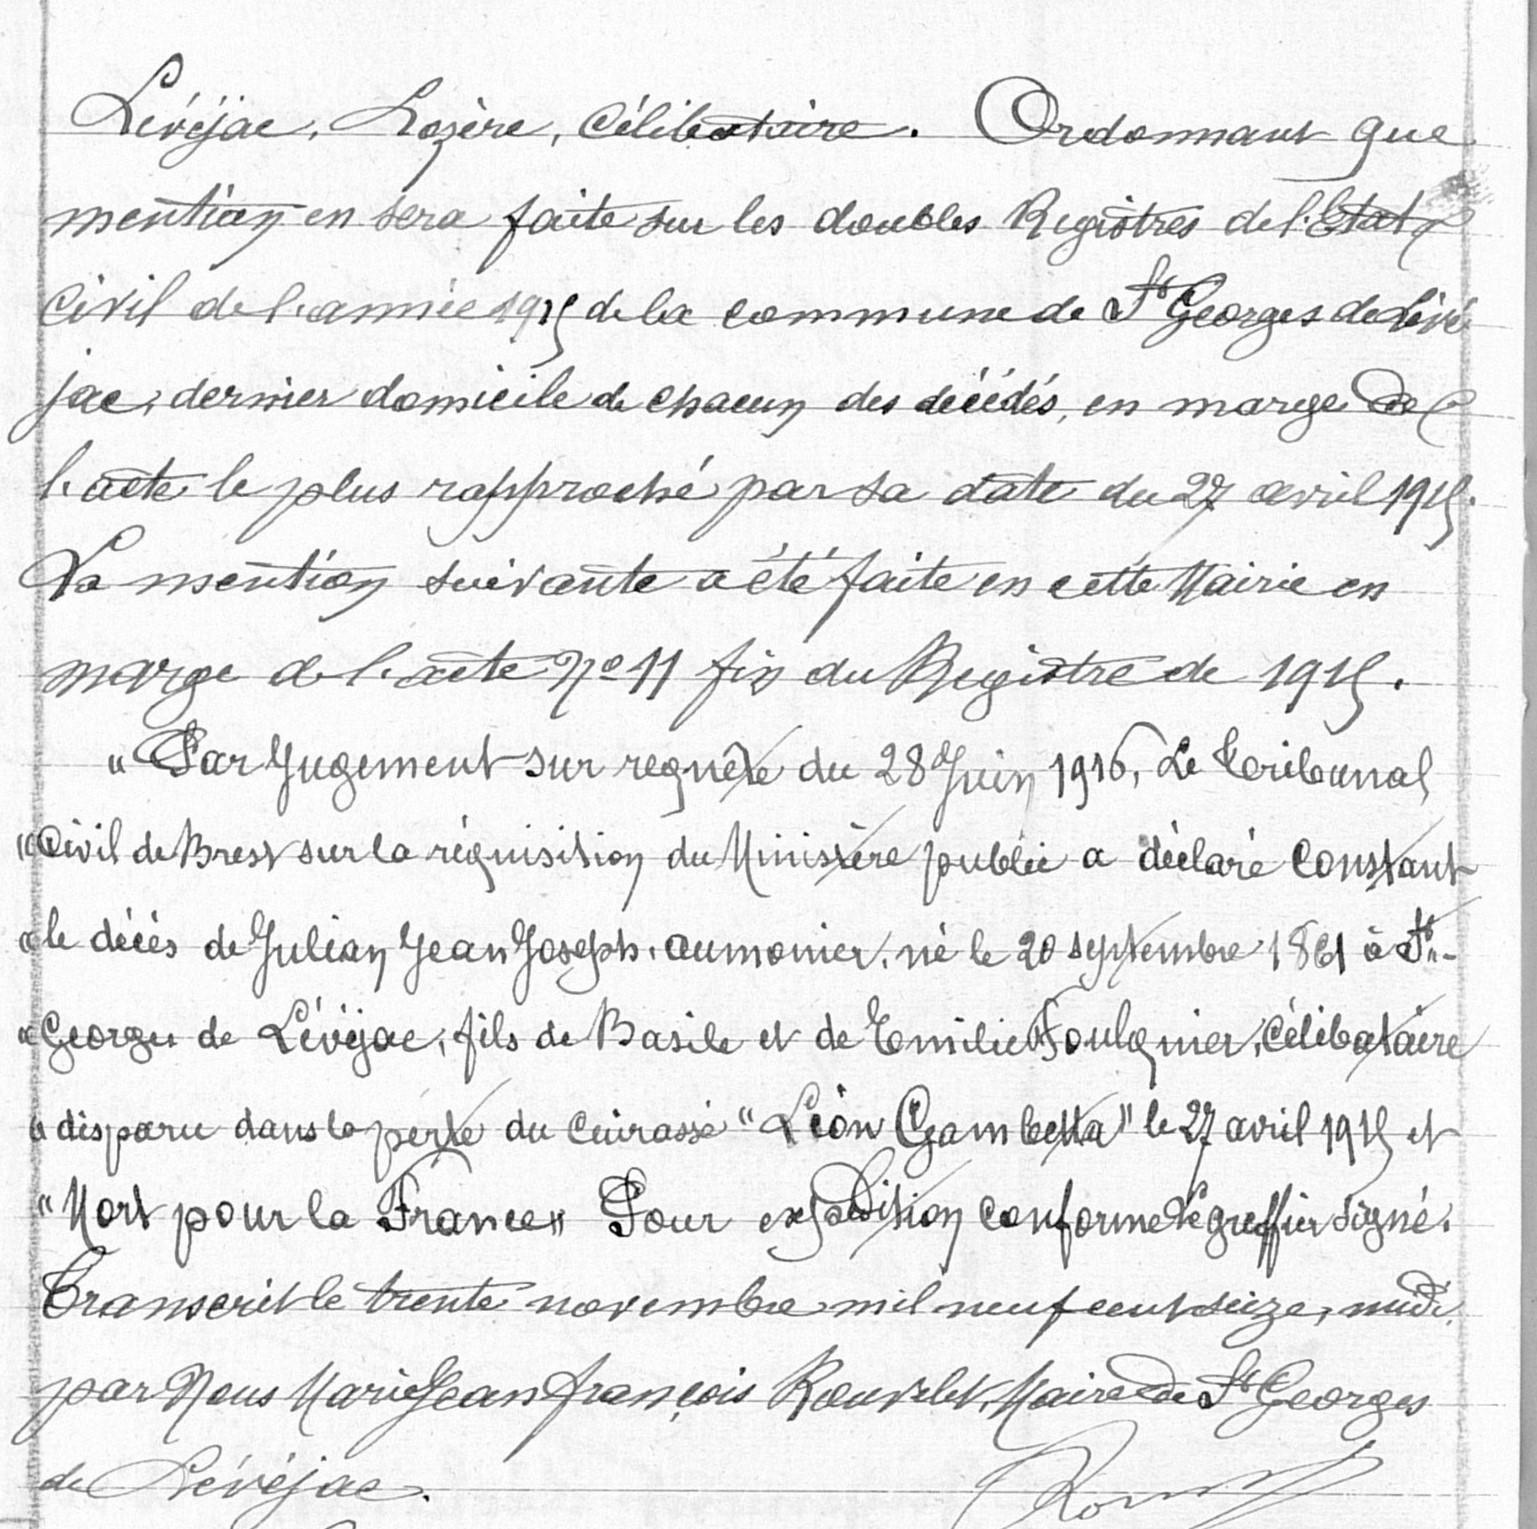 Lévéjac, Lozère, Célibataire. Ordonnant que
mention en sera faite sur les doubles Registres de l'Etat
Civil de l'année 1915 de la commune de St Georges de Lévé
jac, dernier domicile de chacun des décédés, en marge de
l'acte le plus rapproché par sa date du 27 avril 1915.
La mention suivante a été faite en cette Mairie en
marge de l'acte No 11 fin du Registre de 1915.
" Par Jugement sur requête du 28 Juin 1916, Le Tribunal
" Civil de Brest sur la réquisition du Ministère public a déclaré constant
" le décès de Julian Jean Joseph, aumonier, né le 20 septembre 1861 à St-
" Georges de Lévéjac, fils de Basile et de Emilie Foulquier, Célibataire
" disparu dans la perte du Cuirassé "Léon Gambetta" le 27 avril 1915 et
" Mort pour la France" Pour expédition conforme Le greffier Signé.
Transcrit le trente novembre mil neuf cent seize, midi,
par Nous Marie Jean François Rouvelet, Maire de St Georges
de Lévéjac.